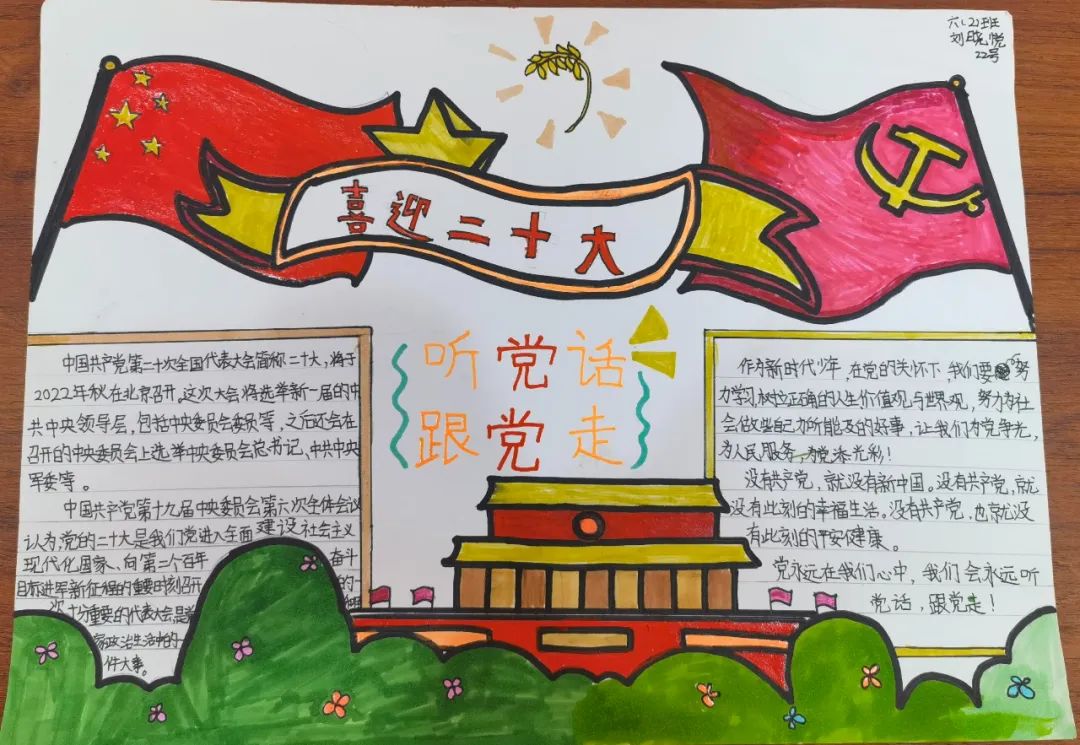 六(2)班
刘晓悦
22号
喜迎二十大
听党话
跟党走
中国共产党第二十次全国代表大会简称二十大,将于
2022年秋在北京召开。这次大会将选举新一届的中
共中央领导层,包括中央委员会委员等,之后还会在
召开的中央委员会上选举中央委员会总书记、中共中央
军委等。
中国共产党第十九届中央委员会第六次全体会议
认为,党的二十大是我们党进入全面建设社会主义
现代化国家、向第二个百年奋斗
目标进军新征程的重要时刻召开的
次十分重要的代表大会,是
家政治生活中的一
件大事。
作为新时代少年,在党的关怀下,我们要努
力学习,树立正确的人生价值观与世界观,努力为社
会做些自己力所能及的好事,让我们为党争光,
为人民服务,为党添光彩!
没有共产党,就没有新中国。没有共产党,就
没有此刻的幸福生活。没有共产党,也就没
有此刻的平安健康。
党永远在我们心中,我们会永远听
党话,跟党走!